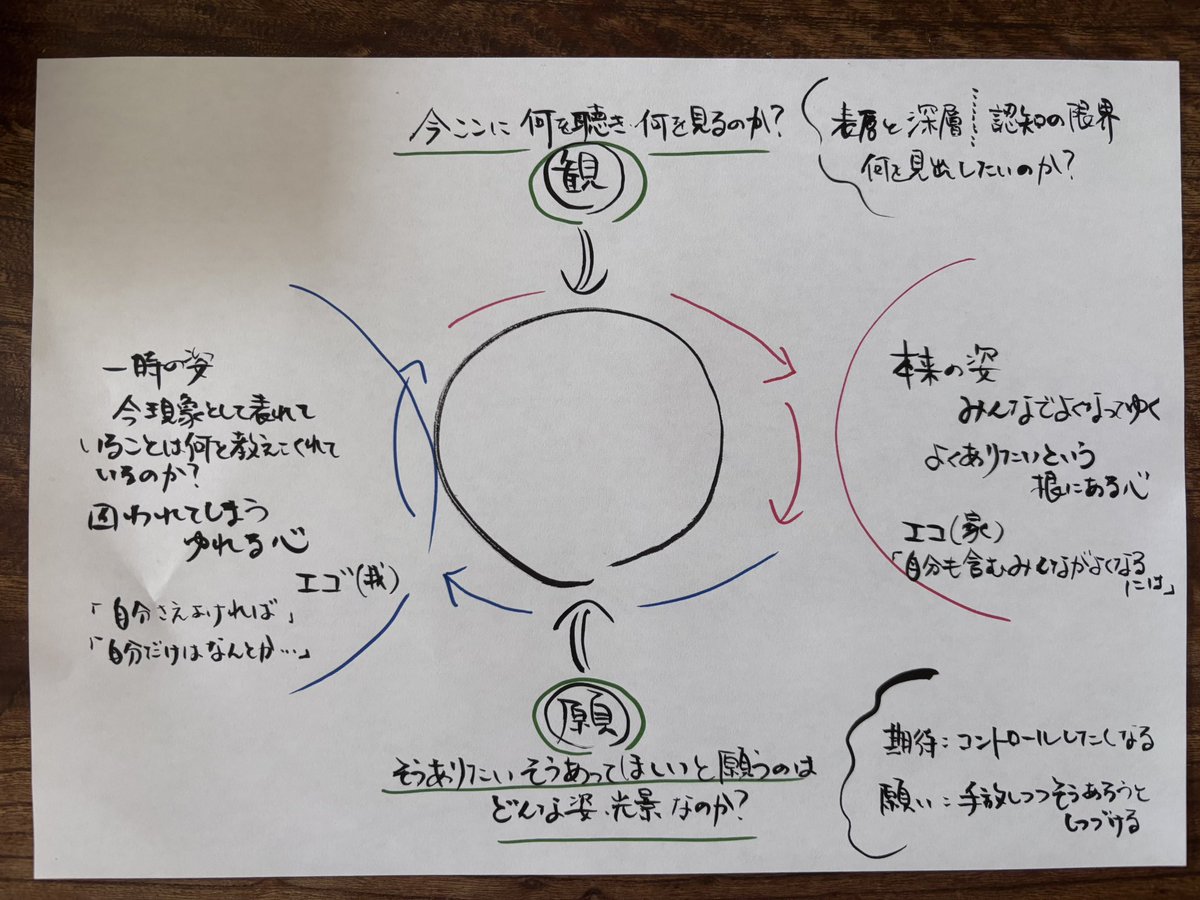 今ここに 何を聴き・何を見るのか?
観
表層と深層 認知の限界
何を見出したいのか?
一時の姿
今現象として表れて
いることは何を教えてくれて
いるのか?
囚われてしまう
ゆれる心
エゴ(我)
「自分さえよければ」
「自分だけはなんとか…」
本来の姿
みんなでよくなってゆく
よくありたいという
根にある心
エコ(家)
「自分も含むみんながよくなる
には」
願
そうありたい そうあってほしいと願うのは
どんな姿、光景なのか?
期待:コントロールしたくなる
願い:手放しつつそうあろうと
しつづける